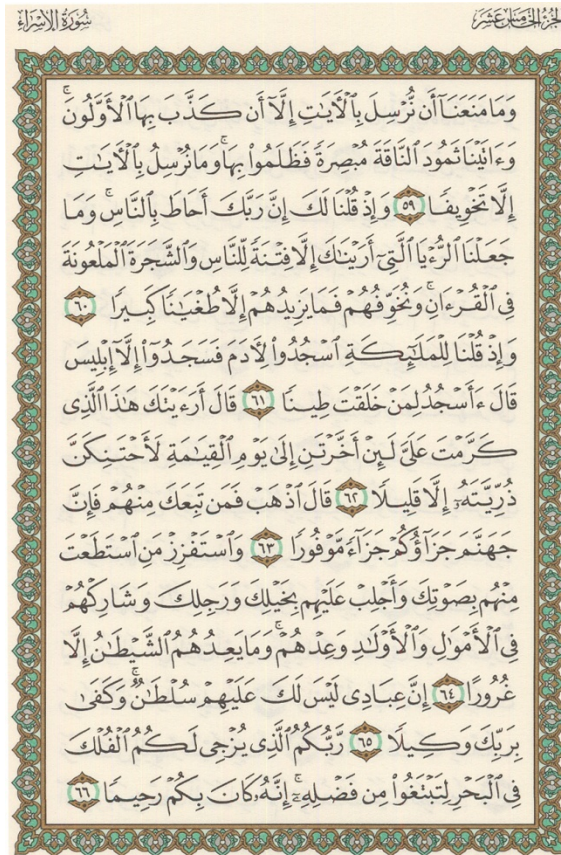 سُورَةُ الإِسْرَاءِ الجُزْءُ الخَامِسَ عَشَرَ
وَمَا مَنَعَنَآ أَن نُّرْسِلَ بِٱلْـَٔايَـٰتِ إِلَّآ أَن كَذَّبَ بِهَا ٱلْأَوَّلُونَۚ
وَءَاتَيْنَا ثَمُودَ ٱلنَّاقَةَ مُبْصِرَةً فَظَلَمُوا۟ بِهَاۚ وَمَا نُرْسِلُ بِٱلْـَٔايَـٰتِ
إِلَّا تَخْوِيفًا ٥٩ وَإِذْ قُلْنَا لَكَ إِنَّ رَبَّكَ أَحَاطَ بِٱلنَّاسِۚ وَمَا
جَعَلْنَا ٱلرُّءْيَا ٱلَّتِىٓ أَرَيْنَـٰكَ إِلَّا فِتْنَةً لِّلنَّاسِ وَٱلشَّجَرَةَ ٱلْمَلْعُونَةَ
فِى ٱلْقُرْءَانِۚ وَنُخَوِّفُهُمْ فَمَا يَزِيدُهُمْ إِلَّا طُغْيَـٰنًا كَبِيرًا ٦٠
وَإِذْ قُلْنَا لِلْمَلَـٰٓئِكَةِ ٱسْجُدُوا۟ لِـَٔادَمَ فَسَجَدُوٓا۟ إِلَّآ إِبْلِيسَ
قَالَ ءَأَسْجُدُ لِمَنْ خَلَقْتَ طِينًا ٦١ قَالَ أَرَءَيْتَكَ هَـٰذَا ٱلَّذِى
كَرَّمْتَ عَلَىَّ لَئِنْ أَخَّرْتَنِ إِلَىٰ يَوْمِ ٱلْقِيَـٰمَةِ لَأَحْتَنِكَنَّ
ذُرِّيَّتَهُۥٓ إِلَّا قَلِيلًا ٦٢ قَالَ ٱذْهَبْ فَمَن تَبِعَكَ مِنْهُمْ فَإِنَّ
جَهَنَّمَ جَزَآؤُكُمْ جَزَآءً مَّوْفُورًا ٦٣ وَٱسْتَفْزِزْ مَنِ ٱسْتَطَعْتَ
مِنْهُم بِصَوْتِكَ وَأَجْلِبْ عَلَيْهِم بِخَيْلِكَ وَرَجِلِكَ وَشَارِكْهُمْ
فِى ٱلْأَمْوَٰلِ وَٱلْأَوْلَـٰدِ وَعِدْهُمْۚ وَمَا يَعِدُهُمُ ٱلشَّيْطَـٰنُ إِلَّا
غُرُورًا ٦٤ إِنَّ عِبَادِى لَيْسَ لَكَ عَلَيْهِمْ سُلْطَـٰنٌۚ وَكَفَىٰ
بِرَبِّكَ وَكِيلًا ٦٥ رَّبُّكُمُ ٱلَّذِى يُزْجِى لَكُمُ ٱلْفُلْكَ
فِى ٱلْبَحْرِ لِتَبْتَغُوا۟ مِن فَضْلِهِۦٓۚ إِنَّهُۥ كَانَ بِكُمْ رَحِيمًا ٦٦